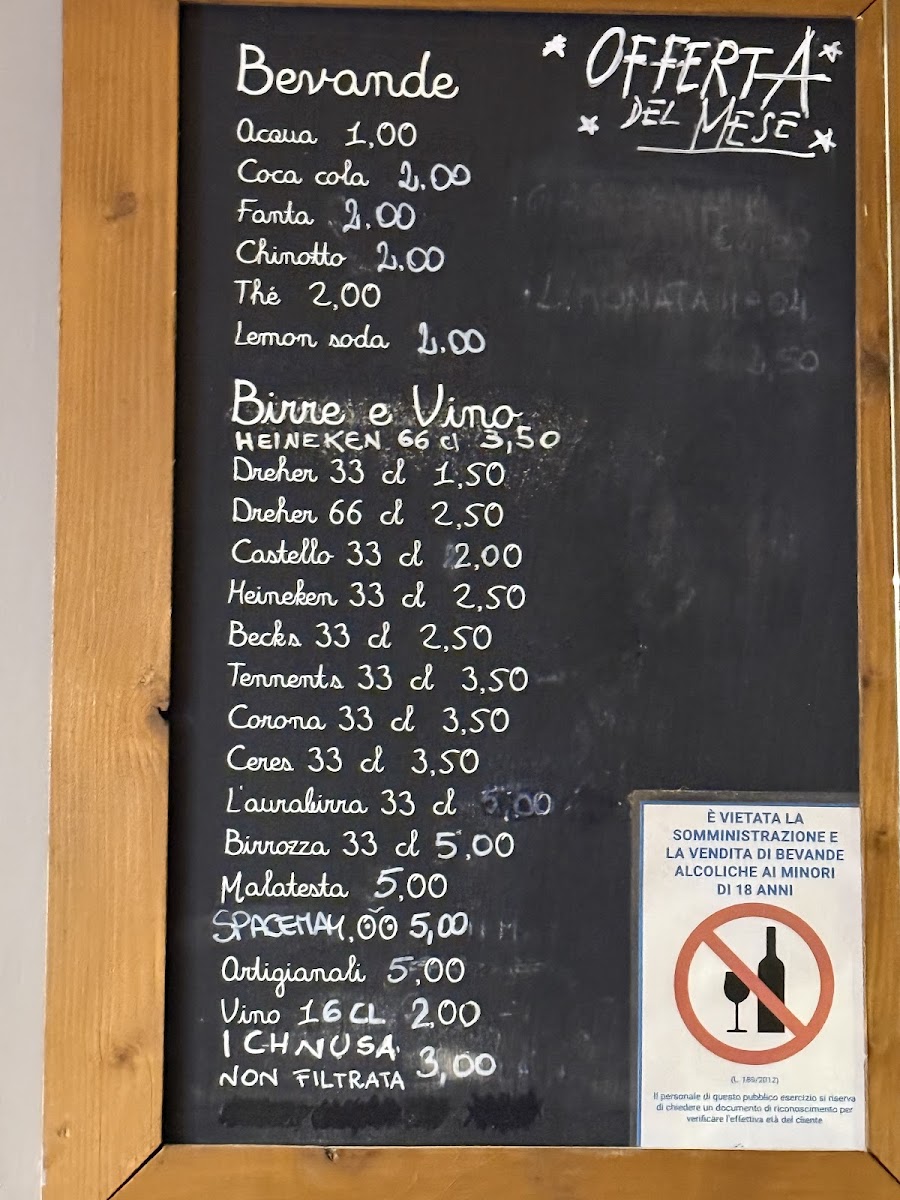 Bevande
Acqua 1,00
Coca cola 2,00
Fanta 2,00
Chinotto 2,00
Thé 2,00
Lemon soda 2,00
Birre e Vino
HEINEKEN 66 cl 3,50
Dreher 33 cl 1,50
Dreher 66 cl 2,50
Castello 33 cl 2,00
Heineken 33 cl 2,50
Becks 33 cl 2,50
Tennents 33 cl 3,50
Corona 33 cl 3,50
Ceres 33 cl 3,50
L'aurabirra 33 cl 5,00
Birrozza 33 cl 5,00
Malatesta 5,00
5,00
Artigianali 5,00
Vino 16 CL 2,00
ICHNUSA
NON FILTRATA 3,00
OFFERTA
DEL MESE
LIMONATA
2,50
È VIETATA LA
SOMMINISTRAZIONE E
LA VENDITA DI BEVANDE
ALCOLICHE AI MINORI
DI 18 ANNI
(L. 189/2012)
Il personale di questo pubblico esercizio si riserva
di chiedere un documento di riconoscimento per
verificare l'effettiva età del cliente